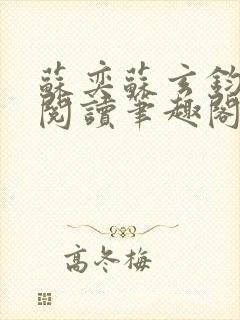 蘇奕蘇玄鈞
閱讀筆趣閣
高冬梅